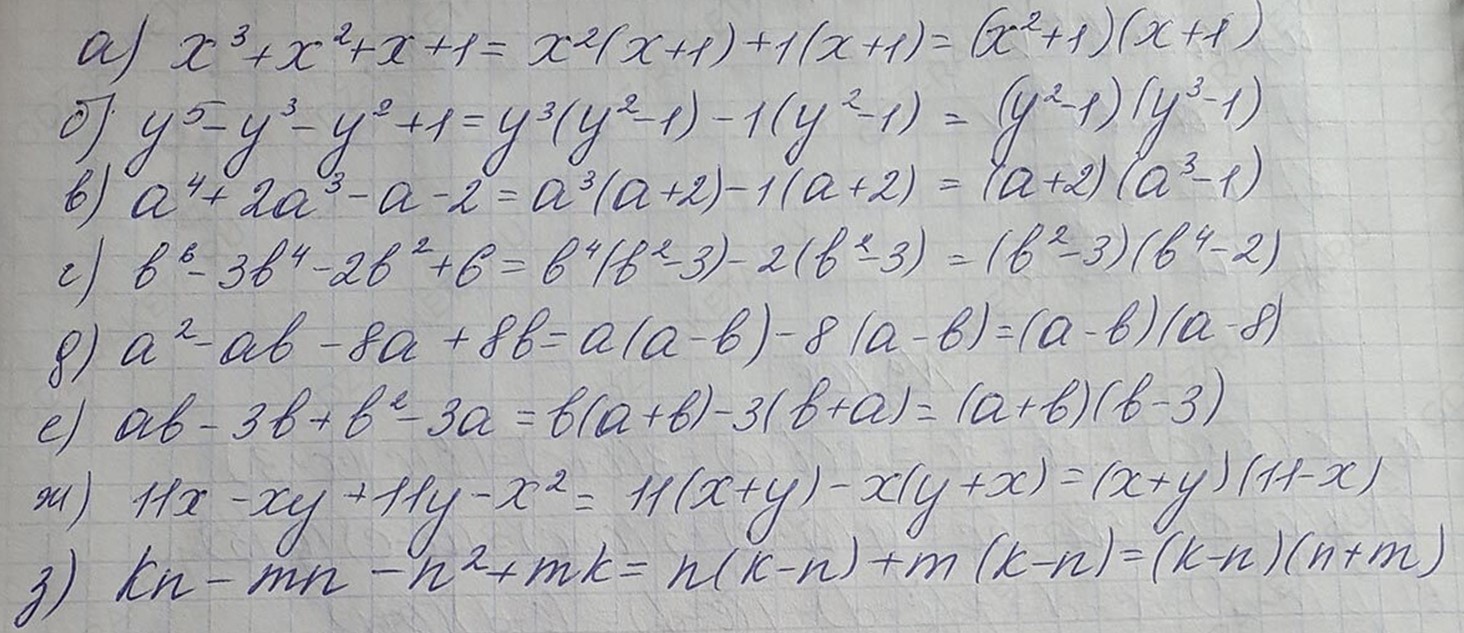 а) x³+x²+x+1= x²(x+1)+1(x+1)= (x²+1)(x+1)
б) y⁵-y³-y²+1=y³(y²-1)-1(y²-1) = (y²-1)(y³-1)
в) a⁴+2a³-a-2=a³(a+2)-1(a+2) = (a+2)(a³-1)
г) b⁶-3b⁴-2b²+6=b⁴(b²-3)-2(b²-3) = (b²-3)(b⁴-2)
д) a²-ab-8a+8b=a(a-b)-8(a-b)=(a-b)(a-8)
е) ab-3b+b²-3a=b(a+b)-3(b+a)=(a+b)(b-3)
ж) 11x-xy+11y-x²= 11(x+y)-x(y+x)=(x+y)(11-x)
з) kn-mn-n²+mk= n(k-n)+m(k-n)=(k-n)(n+m)